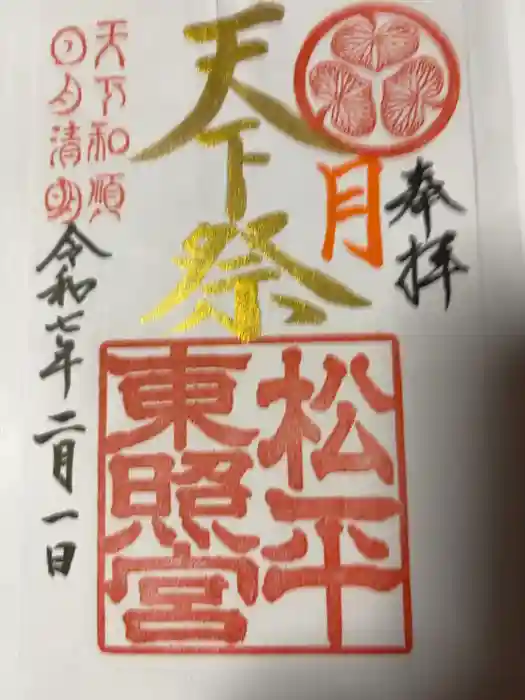 奉拝
月
天下祭
松平
東照宮
天下和順
日月清明
令和七年二月一日